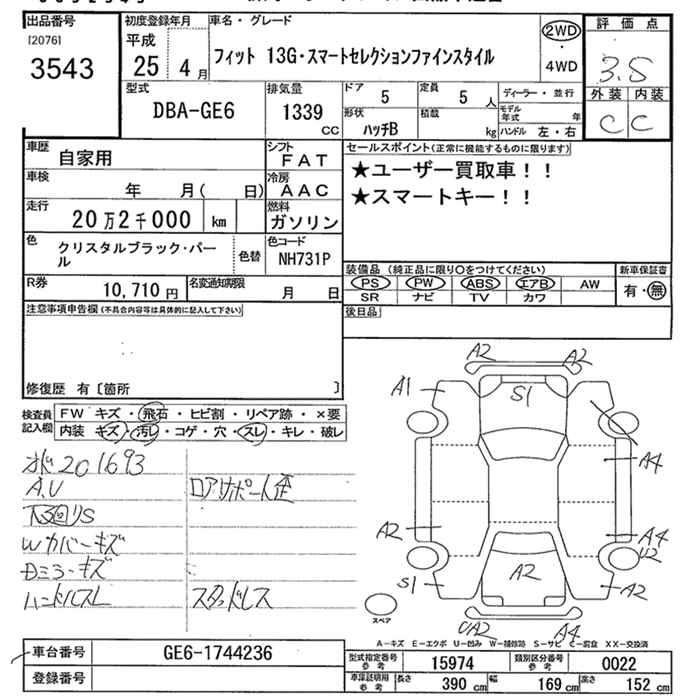 出品番号
[2076]
3543
初度登録年月
平成
25年 4月
車名・グレード
フィット 13G・スマートセレクションファインスタイル
2WD
・
4WD
評価点
3.5
外装 内装
C C
型式
DBA-GE6
排気量
1339
CC
ドア 5
定員 5 人
形状 ハッチB
積載 kg
ディーラー・並行
モデル年式 年
ハンドル 左・右
車歴 自家用
車検 年 月( 日)
走行 20万2千000 km
シフト FAT
冷房 AAC
燃料 ガソリン
色 クリスタルブラック・パール
色替
色コード NH731P
R券 10,710円
名変通知期限 月 日
セールスポイント(正常に機能するものに限ります)
★ユーザー買取車!!
★スマートキー!!
装備品 (純正品に限り○をつけてください)
PS PW ABS エアB AW
SR ナビ TV カワ
新車保証書
有・無
後日品
注意事項申告欄(不具合内容等は具体的に記入して下さい)
修復歴 有〔箇所 〕
検査員記入欄
FW キズ・飛石・ヒビ割・リペア跡・×要
内装 キズ・汚レ・コゲ・穴・スレ・キレ・破レ
201693
A.U
ロアサポート歪
下回りS
Wカバーキズ
Dミラーキズ
ハンドルスレ
スタッドレス
A2 A2
A1 S1
A4
A2 A4
U2
S1 A2 A2
UA2 A4
スペア
A-キズ E-エクボ U-凹み W-補修跡 S-サビ C-腐食 XX-交換済
車台番号 GE6-1744236
登録番号
型式指定番号 参考 15974
類別区分番号 参考 0022
車庫証明用 参考 長さ 390 cm 幅 169 cm 高さ 152 cm